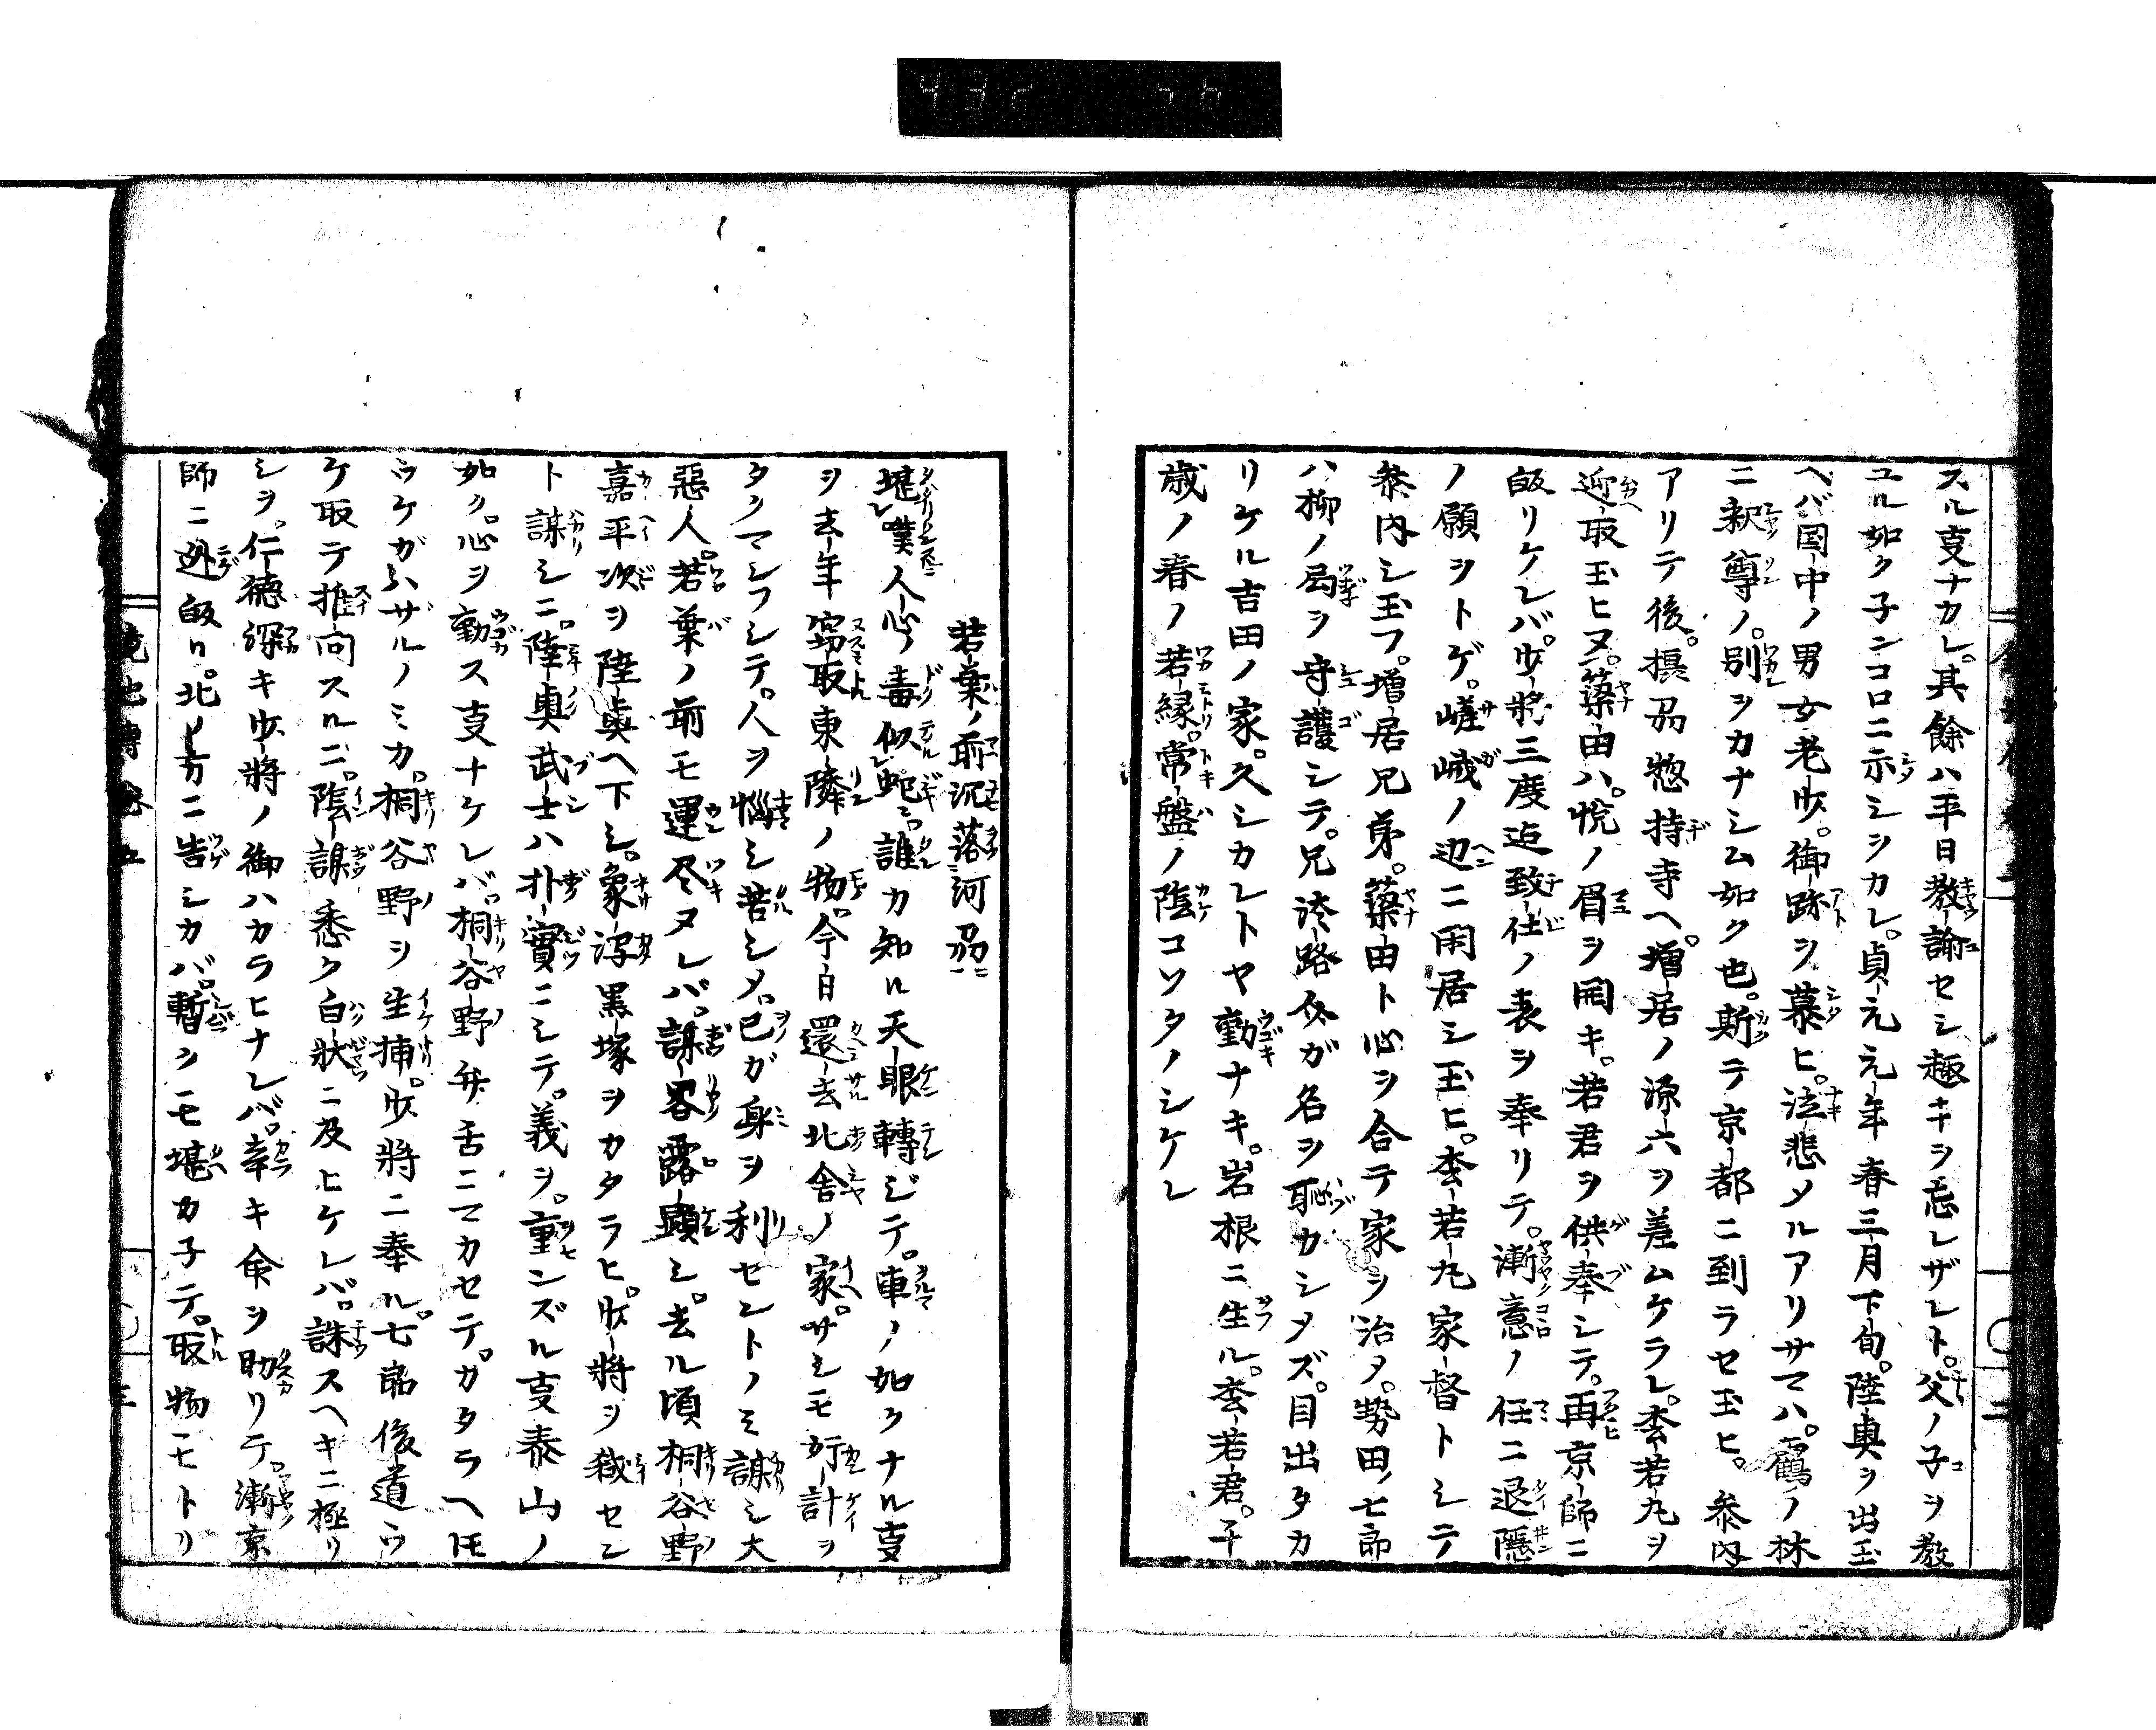 スル支ナカレ。其餘ハ平日教諭セシ趣キヲ忘レザレト。父ノ子ヲ教
ユル如ク子ンコロニ示シシカレ。貞元元年春三月下旬。陸奥ヲ出玉
ヘバ国中ノ男女老少。御跡ヲ慕ヒ。泣悲メルアリサマハ。霍ノ林
ニ釈尊ノ。別ヲカナシム如ク也。斯テ京都ニ到ラセ玉ヒ。参内
アリテ後。摂刕惣持寺ヘ。増居ノ源六ヲ差ムケラレ。杢若丸ヲ
迎取玉ヒヌ。簗由ハ。悦ノ眉ヲ開キ。若君ヲ供奉シテ。再京師ニ
皈リケレバ。少将三度迠致仕ノ表ヲ奉リテ。漸意ノ任ニ退隱
ノ願ヲトゲ。嵯峨ノ辺ニ閑居シ玉ヒ。杢若丸家督トシテ
叅内シ玉フ。増居兄弟。簗由ト心ヲ合テ家ヲ治メ。勢田ノ七郎
ハ柳ノ局ヲ守護シテ。兄淡路介ガ名ヲ恥カシメズ。目出タカ
リケル吉田ノ家。久シカレトヤ動ナキ。岩根ニ生ル。杢若君。千
歳ノ春ノ若緑。常盤ノ陰コソタノシケレ
若葉ノ前沉落河刕
堪レ嘆人心ノ毒似レ蛇ニ。誰カ知ル天眼轉ジテ。車ノ如クナル支
ヲ去年窃取東隣ノ物。今日還去北舎ノ家。サシモ奸計ヲ
タクマシフシテ。人ヲ惱シ苦シメ。己ガ身ヲ利セントノミ謀シ大
惡人。若葉ノ前モ運尽ヌレバ。謀畧露顕シ。去ル頃桐谷野
嘉平次ヲ陸奥ヘ下シ。象潟黒塚ヲカタラヒ。少将ヲ弑セン
ト謀シニ。陸奥武士ハ朴實ニシテ。義ヲ。重ンズル支泰山ノ
如ク。心ヲ動ス支ナケレバ。桐谷野弁舌ニマカセテ。カタラヘ𪜈
ウケガハザルノミカ。桐谷野ヲ生捕。少将ニ奉ル。七郎俊道ウ
ケ取テ推問スルニ。陰謀悉ク白狀ニ及ヒケレバ。誅スヘキニ極リ
シヲ。仁德深キ少将ノ御ハカラヒナレバ。辛キ命ヲ助リテ。漸京
師ニ迯皈リ。北ノ方ニ告シカバ。暫シモ堪カ子テ。取物モトリ